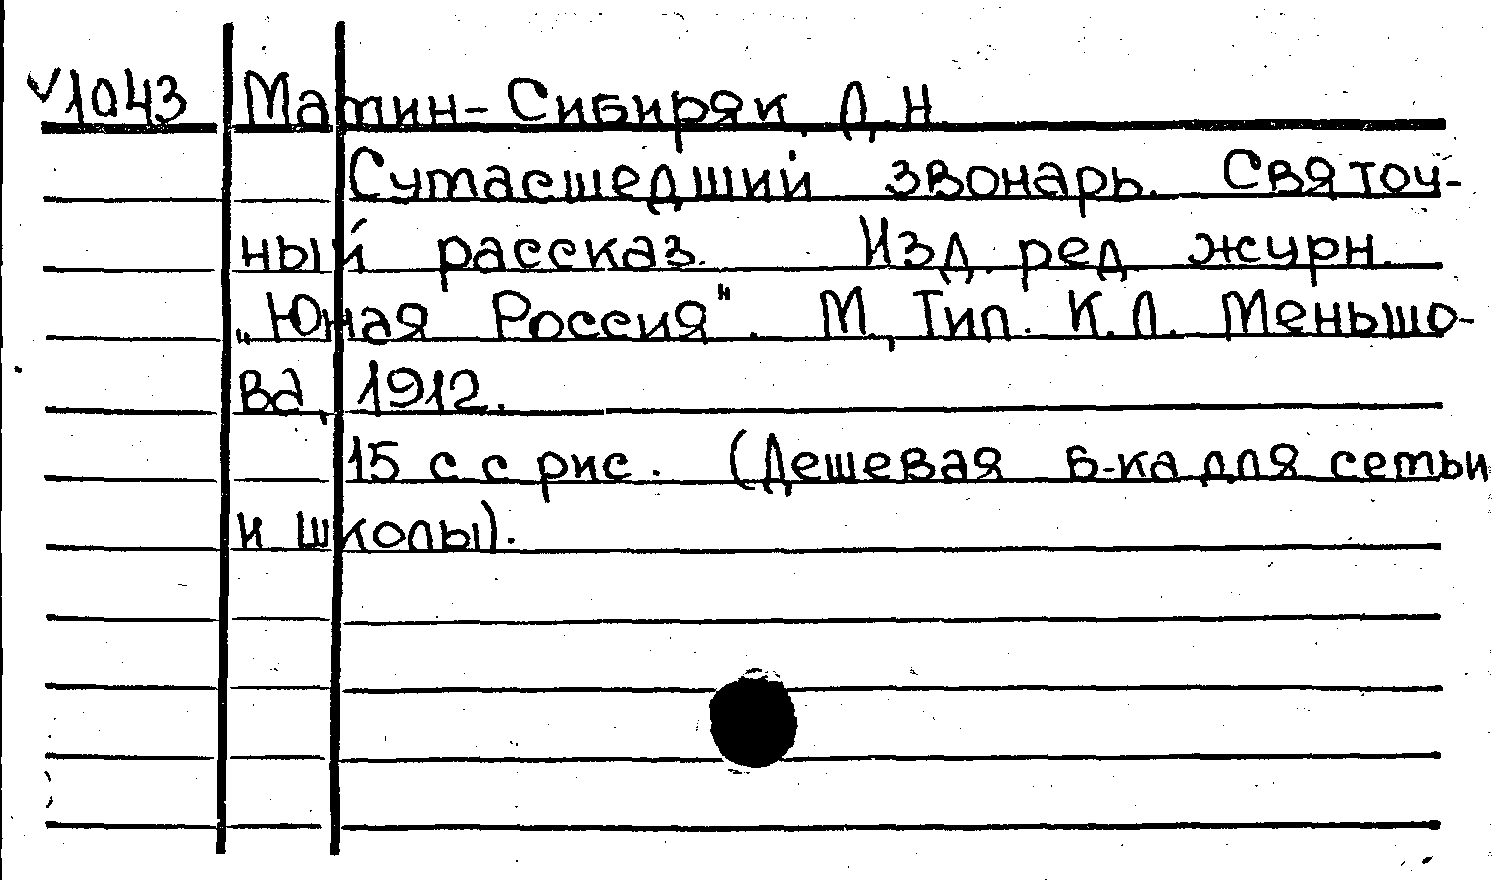 √1043 Мамин-Сибиряк, Д.Н.
Сумасшедший звонарь. Святоч-
ный рассказ. Изд. ред. журн.
„Юная Россия". М., Тип. К.Л. Меньшо-
ва, 1912.
15 с. с рис. (Дешевая б-ка для семьи
и школы).